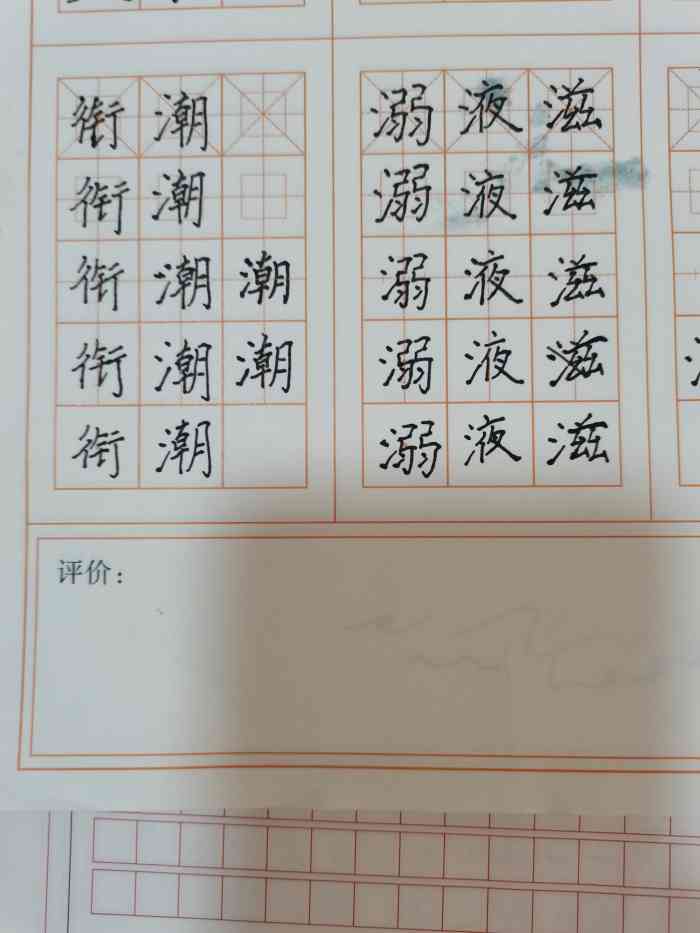 衔 潮 溺 液 滋
衔 潮 溺 液 滋
衔 潮 潮 溺 液 滋
衔 潮 潮 溺 液 滋
衔 潮 溺 液 滋
评价: